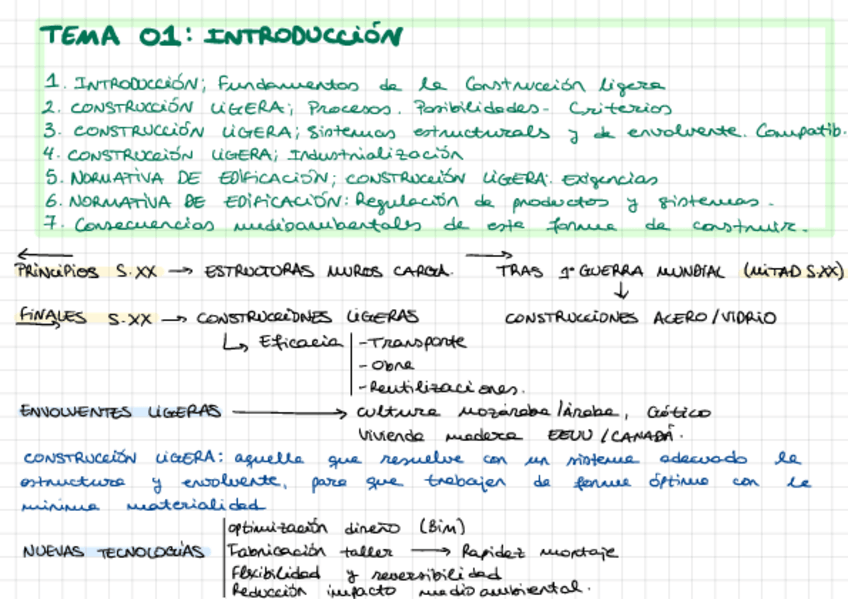 TEMA 01: INTRODUCCIÓN
1. INTRODUCCIÓN; Fundamentos de la Construcción ligera
2. CONSTRUCCIÓN LIGERA; Procesos. Posibilidades - Criterios
3. CONSTRUCCIÓN LIGERA; Sistemas estructurals y de envolvente. Compatib.
4. CONSTRUCCIÓN LIGERA; Industrialización
5. NORMATIVA DE EDIFICACIÓN; CONSTRUCCIÓN LIGERA. Exigencias
6. NORMATIVA DE EDIFICACIÓN: Regulación de productos y sistemas.
7. Consecuencias medioambientales de esta forma de construir.
← →
PRINCIPIOS S.XX → ESTRUCTURAS MUROS CARGA. TRAS 1ª GUERRA MUNDIAL (MITAD S.XX)
↓
FINALES S.XX → CONSTRUCCIONES LIGERAS CONSTRUCCIONES ACERO/VIDRIO
↳ Eficacia - Transporte
- Obra
- Reutilizaciones.
ENVOLVENTES LIGERAS → cultura mozárabe/árabe, Gótico
Vivienda madera EEUU/CANADÁ.
CONSTRUCCIÓN LIGERA: aquella que resuelve con un sistema adecuado la
estructura y envolvente, para que trabajen de forma óptima con la
mínima materialidad
optimización diseño (BIM)
NUEVAS TECNOLOGÍAS Fabricación taller → Rapidez montaje
Flexibilidad y reversibilidad
Reducción impacto medioambiental.